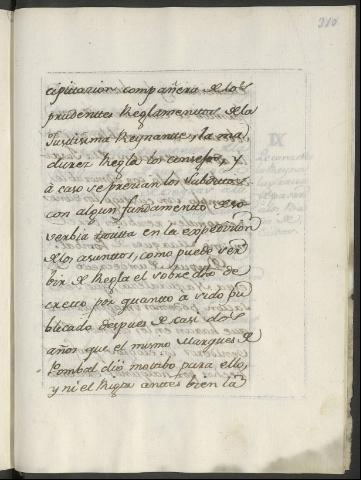 310
cipitacion compañera de los
prudentes Reglamentos de la
Justisima Reynante, la ma
durez Regla los consejos, y
à caso se previan los Subditos
con algun fundamento de so
verbia oculta en la expedicion
de los asuntos, como puede ser
bir de Regla el sobre dho de
creto por quanto a sido pu
blicado despues de casi dos
años que el mismo Marques de
Pombal diò motabo para ello,
y ni el Reyno antes bien la